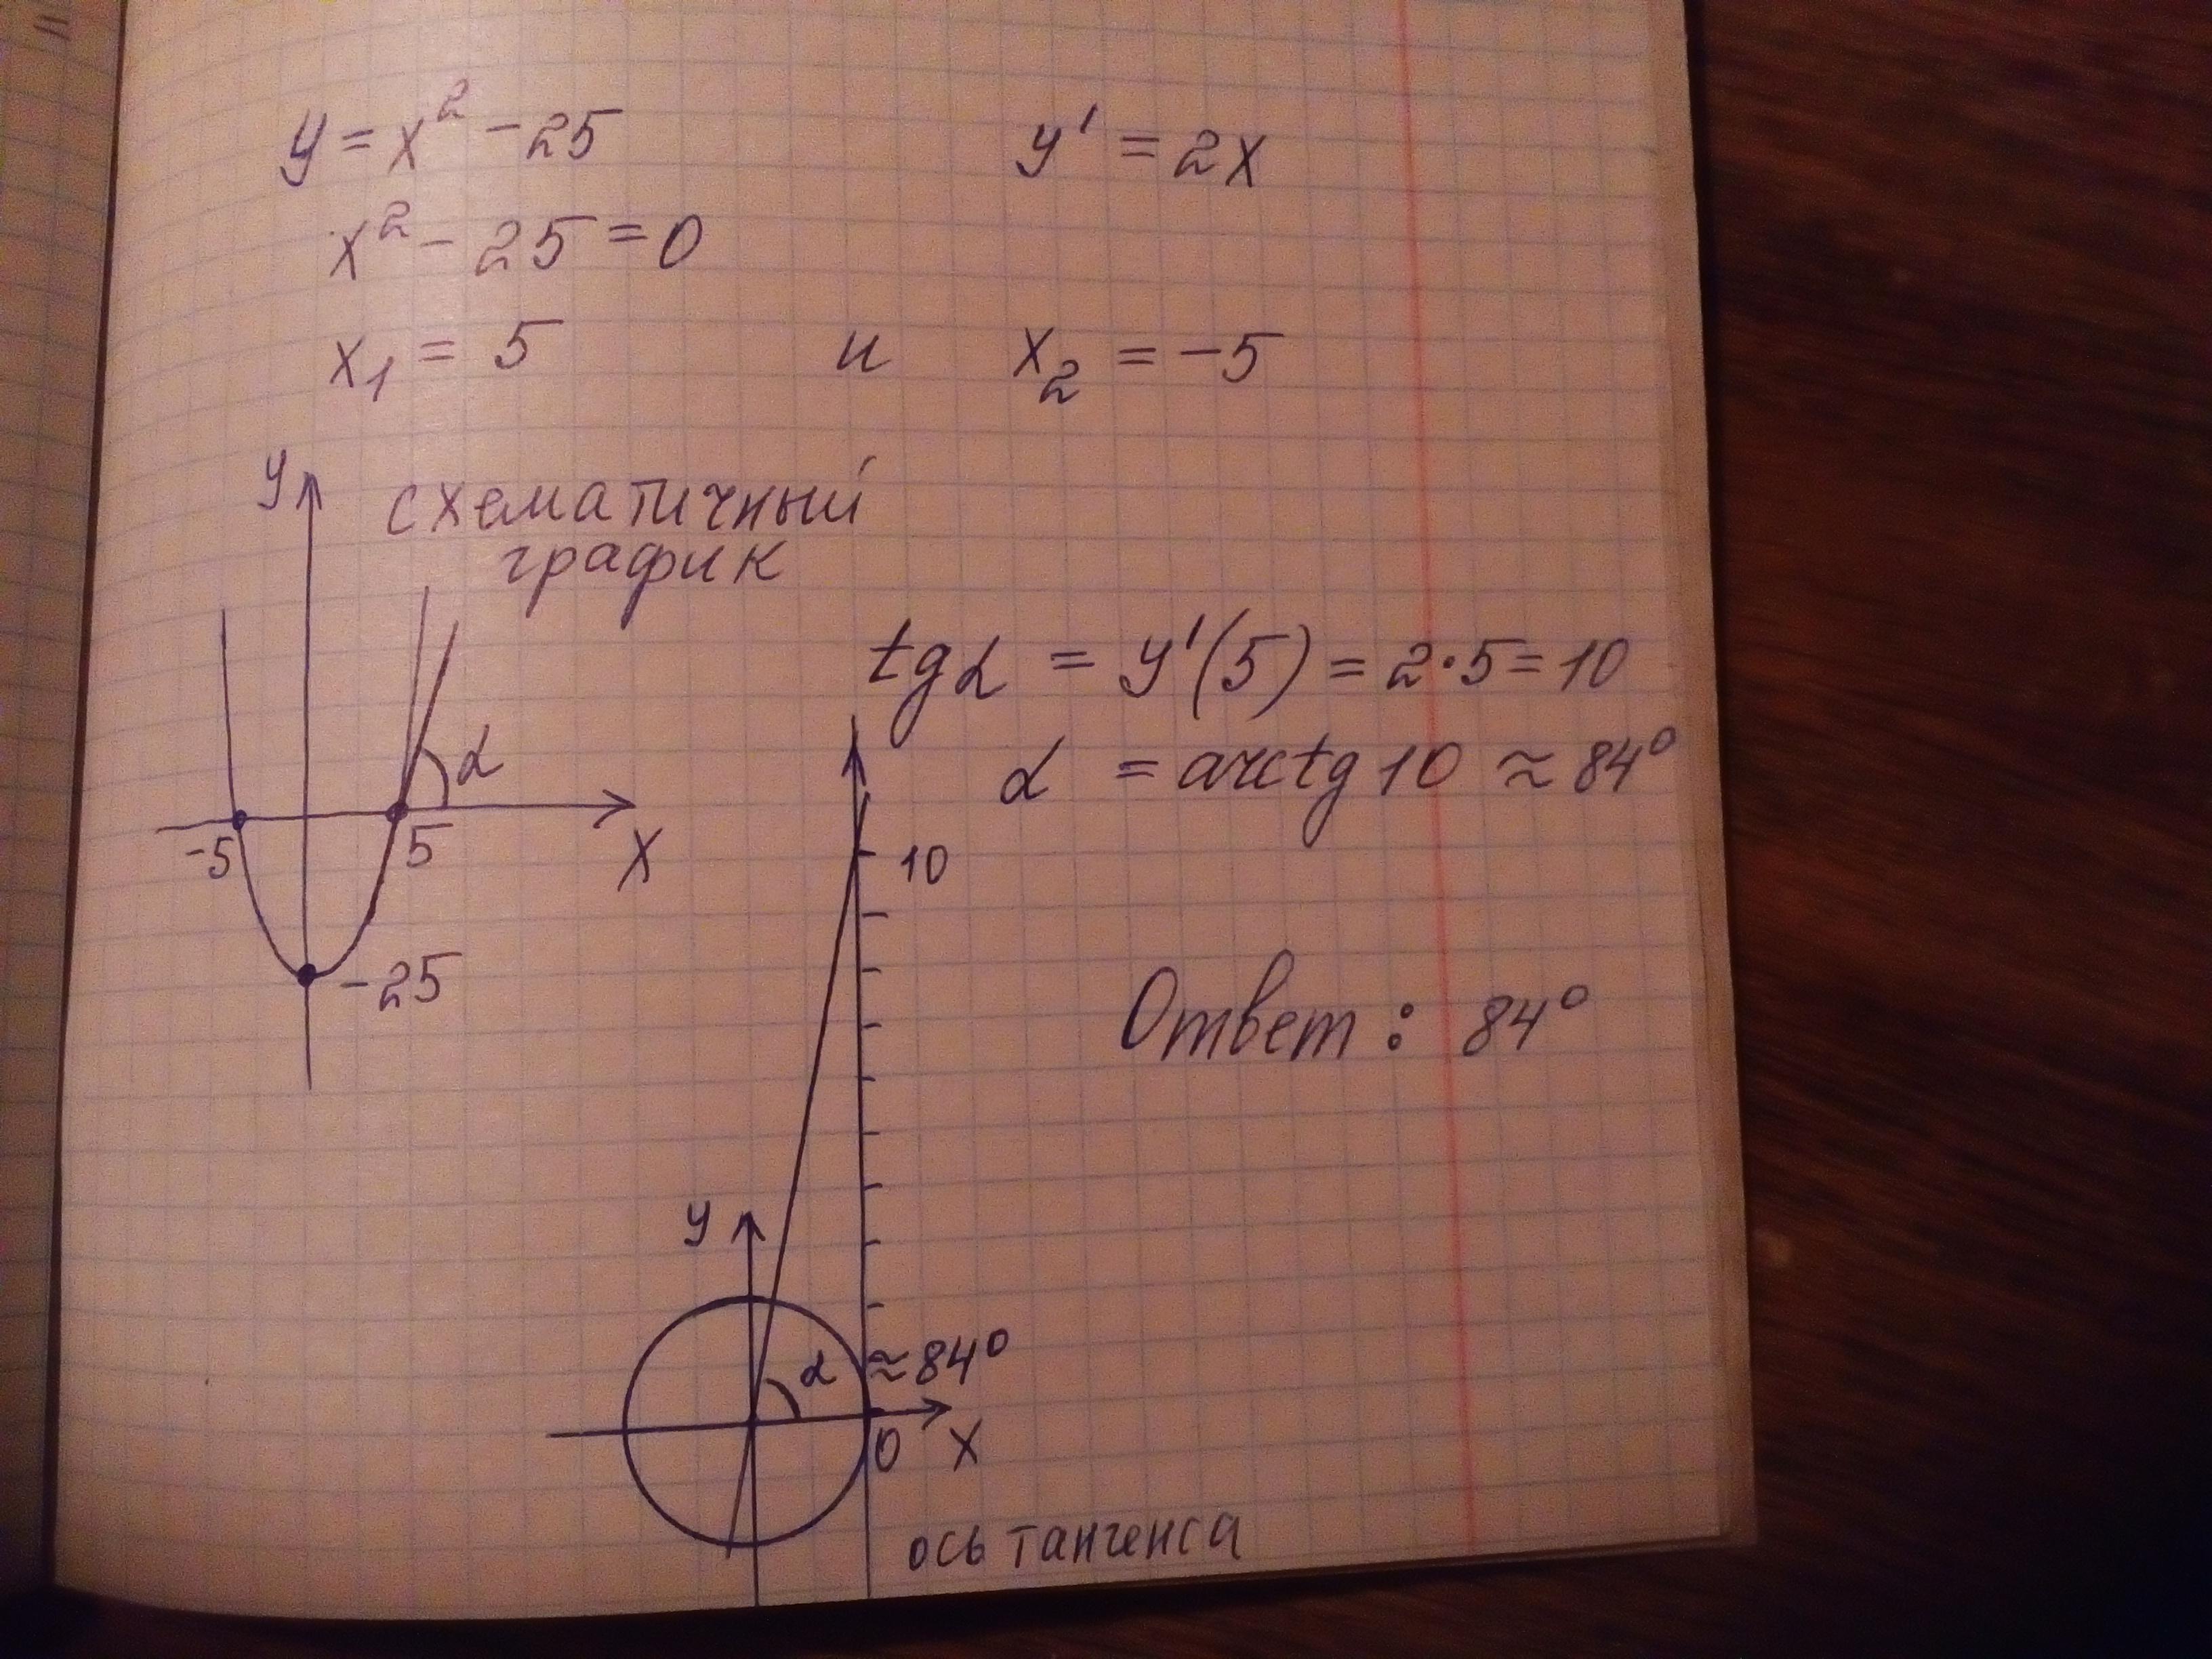 y = x² - 25    y' = 2x
x² - 25 = 0
x₁ = 5    и    x₂ = -5
y
схематичный
график
tg α = y'(5) = 2·5 = 10
α = arctg 10 ≈ 84°
α
-5    5    x
10
-25
Ответ: 84°
y
α ≈ 84°
0    x
ось тангенса